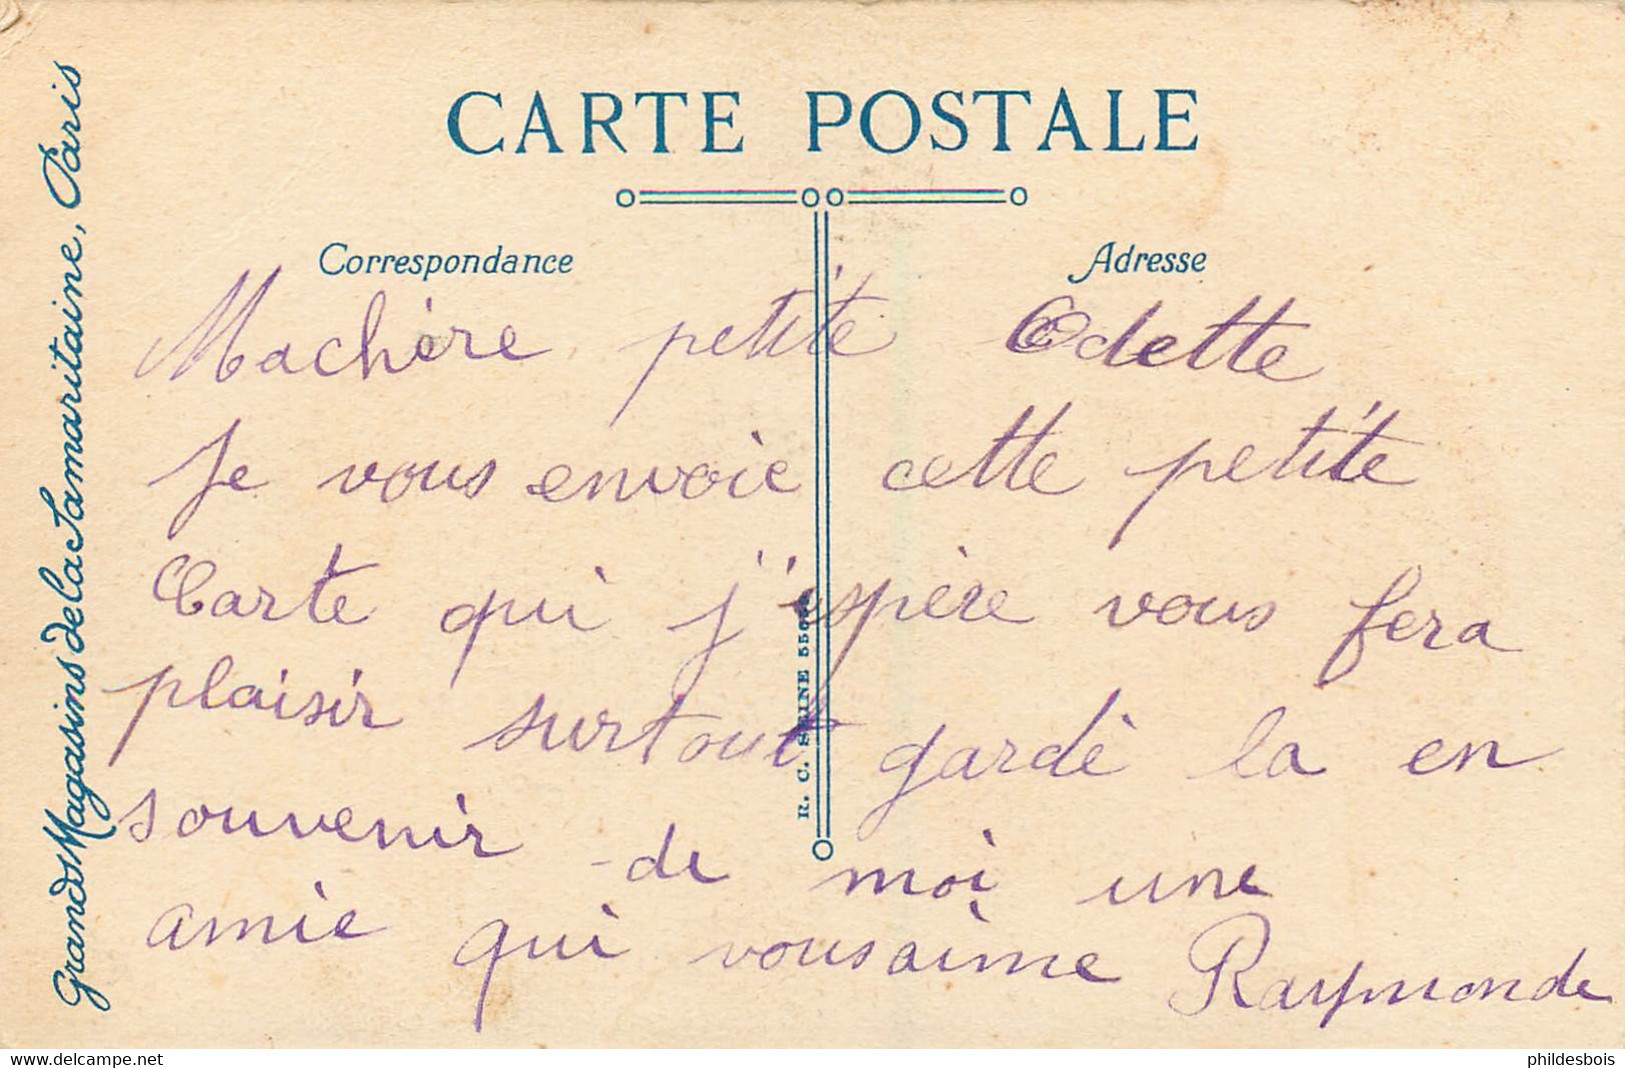 CARTE POSTALE
Correspondance
Adresse
Grands Magasins de la Samaritaine, Paris
Machère petite Odette
Je vous envoie cette petite
Carte qui j'espère vous fera
plaisir surtout gardè la en
souvenir de moi une
amie qui vous aime Raymonde
R. C. SEINE
delcampe.net
phildesbois